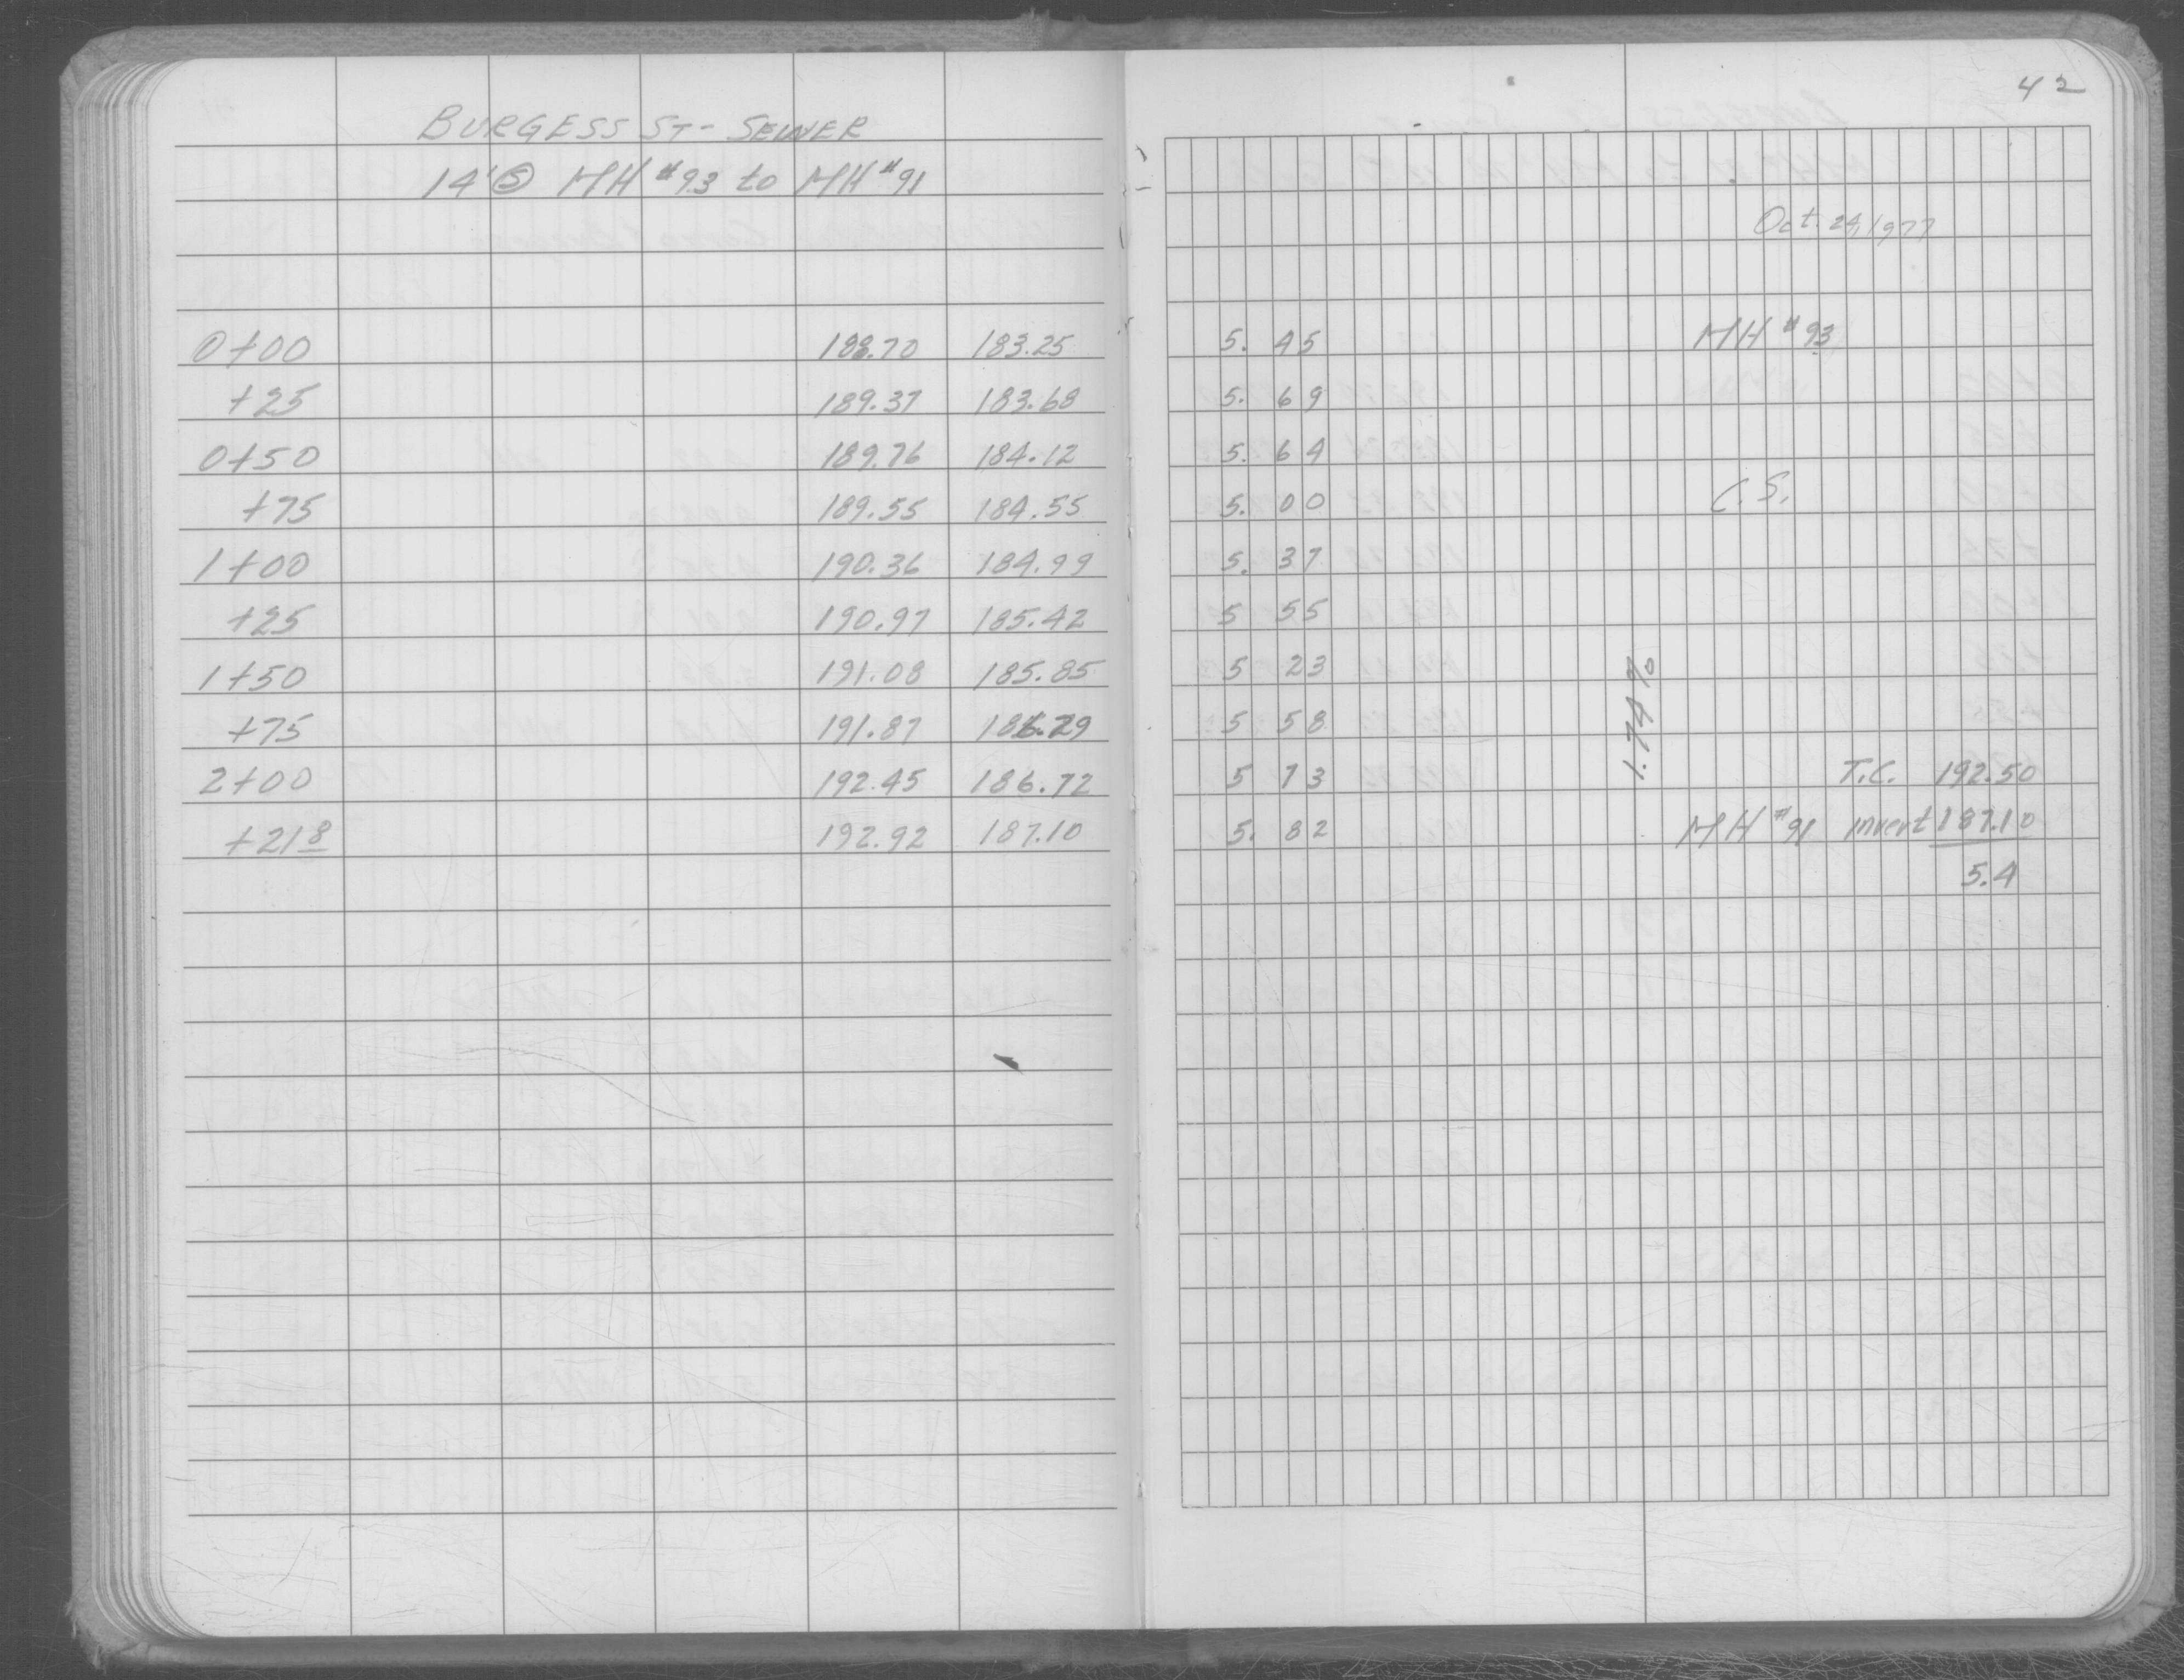 42
BURGESS ST - SEWER
14' Ⓢ MH #93 to MH #91
Oct. 24, 1977
0+00 188.70 183.25 5.45 MH #93
+25 189.37 183.68 5.69
0+50 189.76 184.12 5.64
+75 189.55 184.55 5.00 C.S.
1+00 190.36 184.99 5.37
+25 190.97 185.42 5 55
1+50 191.08 185.85 5 23
+75 191.87 186.29 5 58
1.74%
2+00 192.45 186.72 5 73 T.C. 192.50
+218 192.92 187.10 5.82 MH #91 invert 187.10
5.4